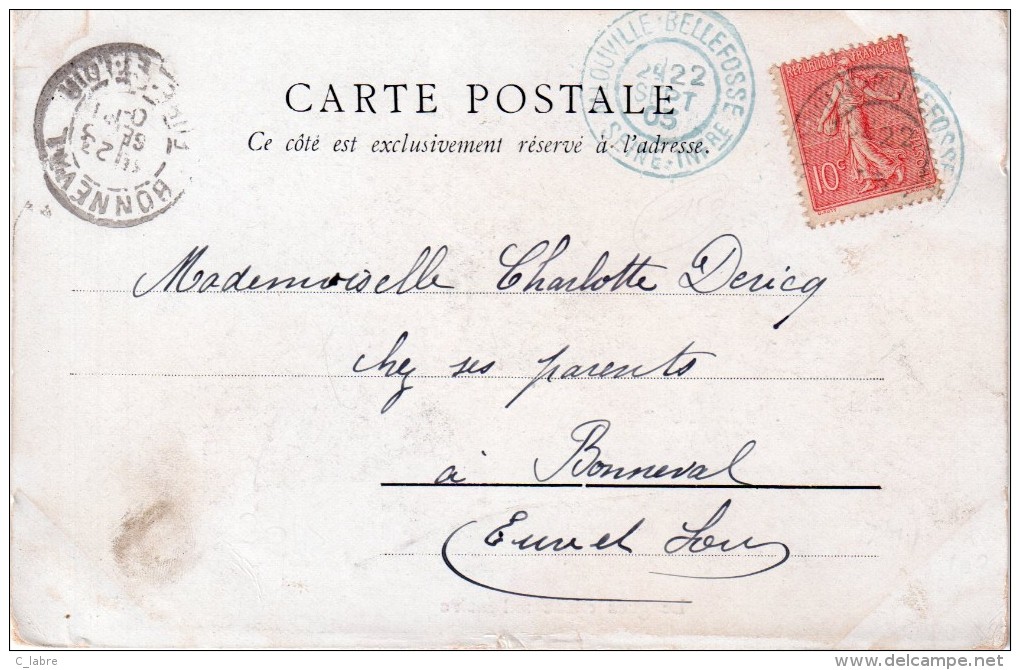 NOUVILLE-BELLEFOSSE
22
SEPT
05
SEINE-INFRE
RÉPUBLIQUE FRANÇAISE
10c
CARTE POSTALE
Ce côté est exclusivement réservé à l'adresse.
BONNEVAL
23
Mademoiselle Charlotte Dericq
chez ses parents
à Bonneval
Eure et Loir
C_labre
www.delcampe.net